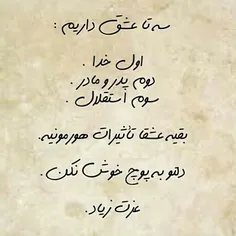 سه تا عشق داریم :
اول خدا .
دوم پدر و مادر .
سوم استقلال .
بقیه عشقا تأثیرات هورمونیه.
دلتو به پوچ خوش نکن .
عزت زیاد .